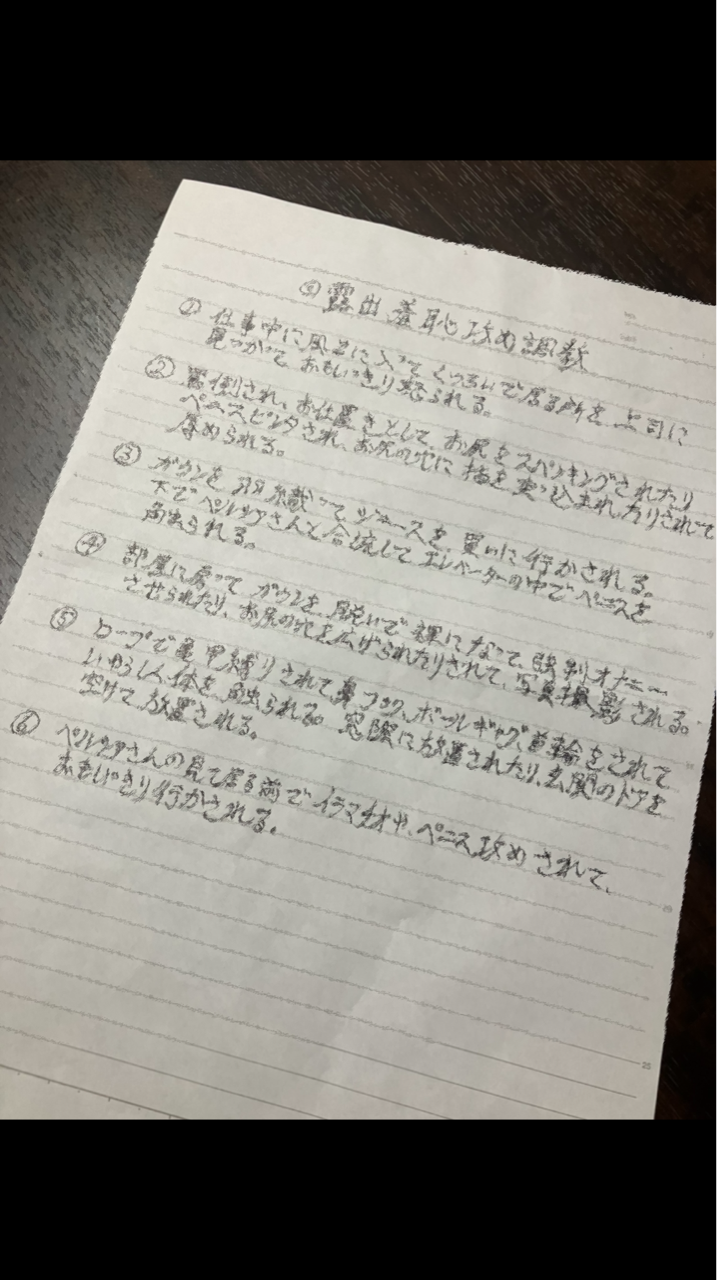 ◎露出羞恥攻め調教
① 仕事中に風呂に入ってくつろいで居る所を、上司に
見つかっておもいっきり怒られる。
② 罵倒され、お仕置きとして、お尻をスパンキングされたり
ペニスビンタされ、お尻の穴に指を突っ込まれたりされて
辱められる。
③ ガウンを羽織ってジュースを買いに行かされる。
下でペルシアさんと合流してエレベーターの中でペニスを
触られる。
④ 部屋に戻ってガウンを脱いで裸になって、強制オナニー
させられたり、お尻の穴を広げられたりされて、写真撮影される。
⑤ ロープで亀甲縛りされて鼻フック、ボールギャグ、首輪をされて
いやらしく体を触られる。実際に放置されたり、玄関のドアを
空けて放置される。
⑥ ペルシアさんの見て居る前でイラマチオや、ペニス攻めされて、
おもいっきり行かされる。